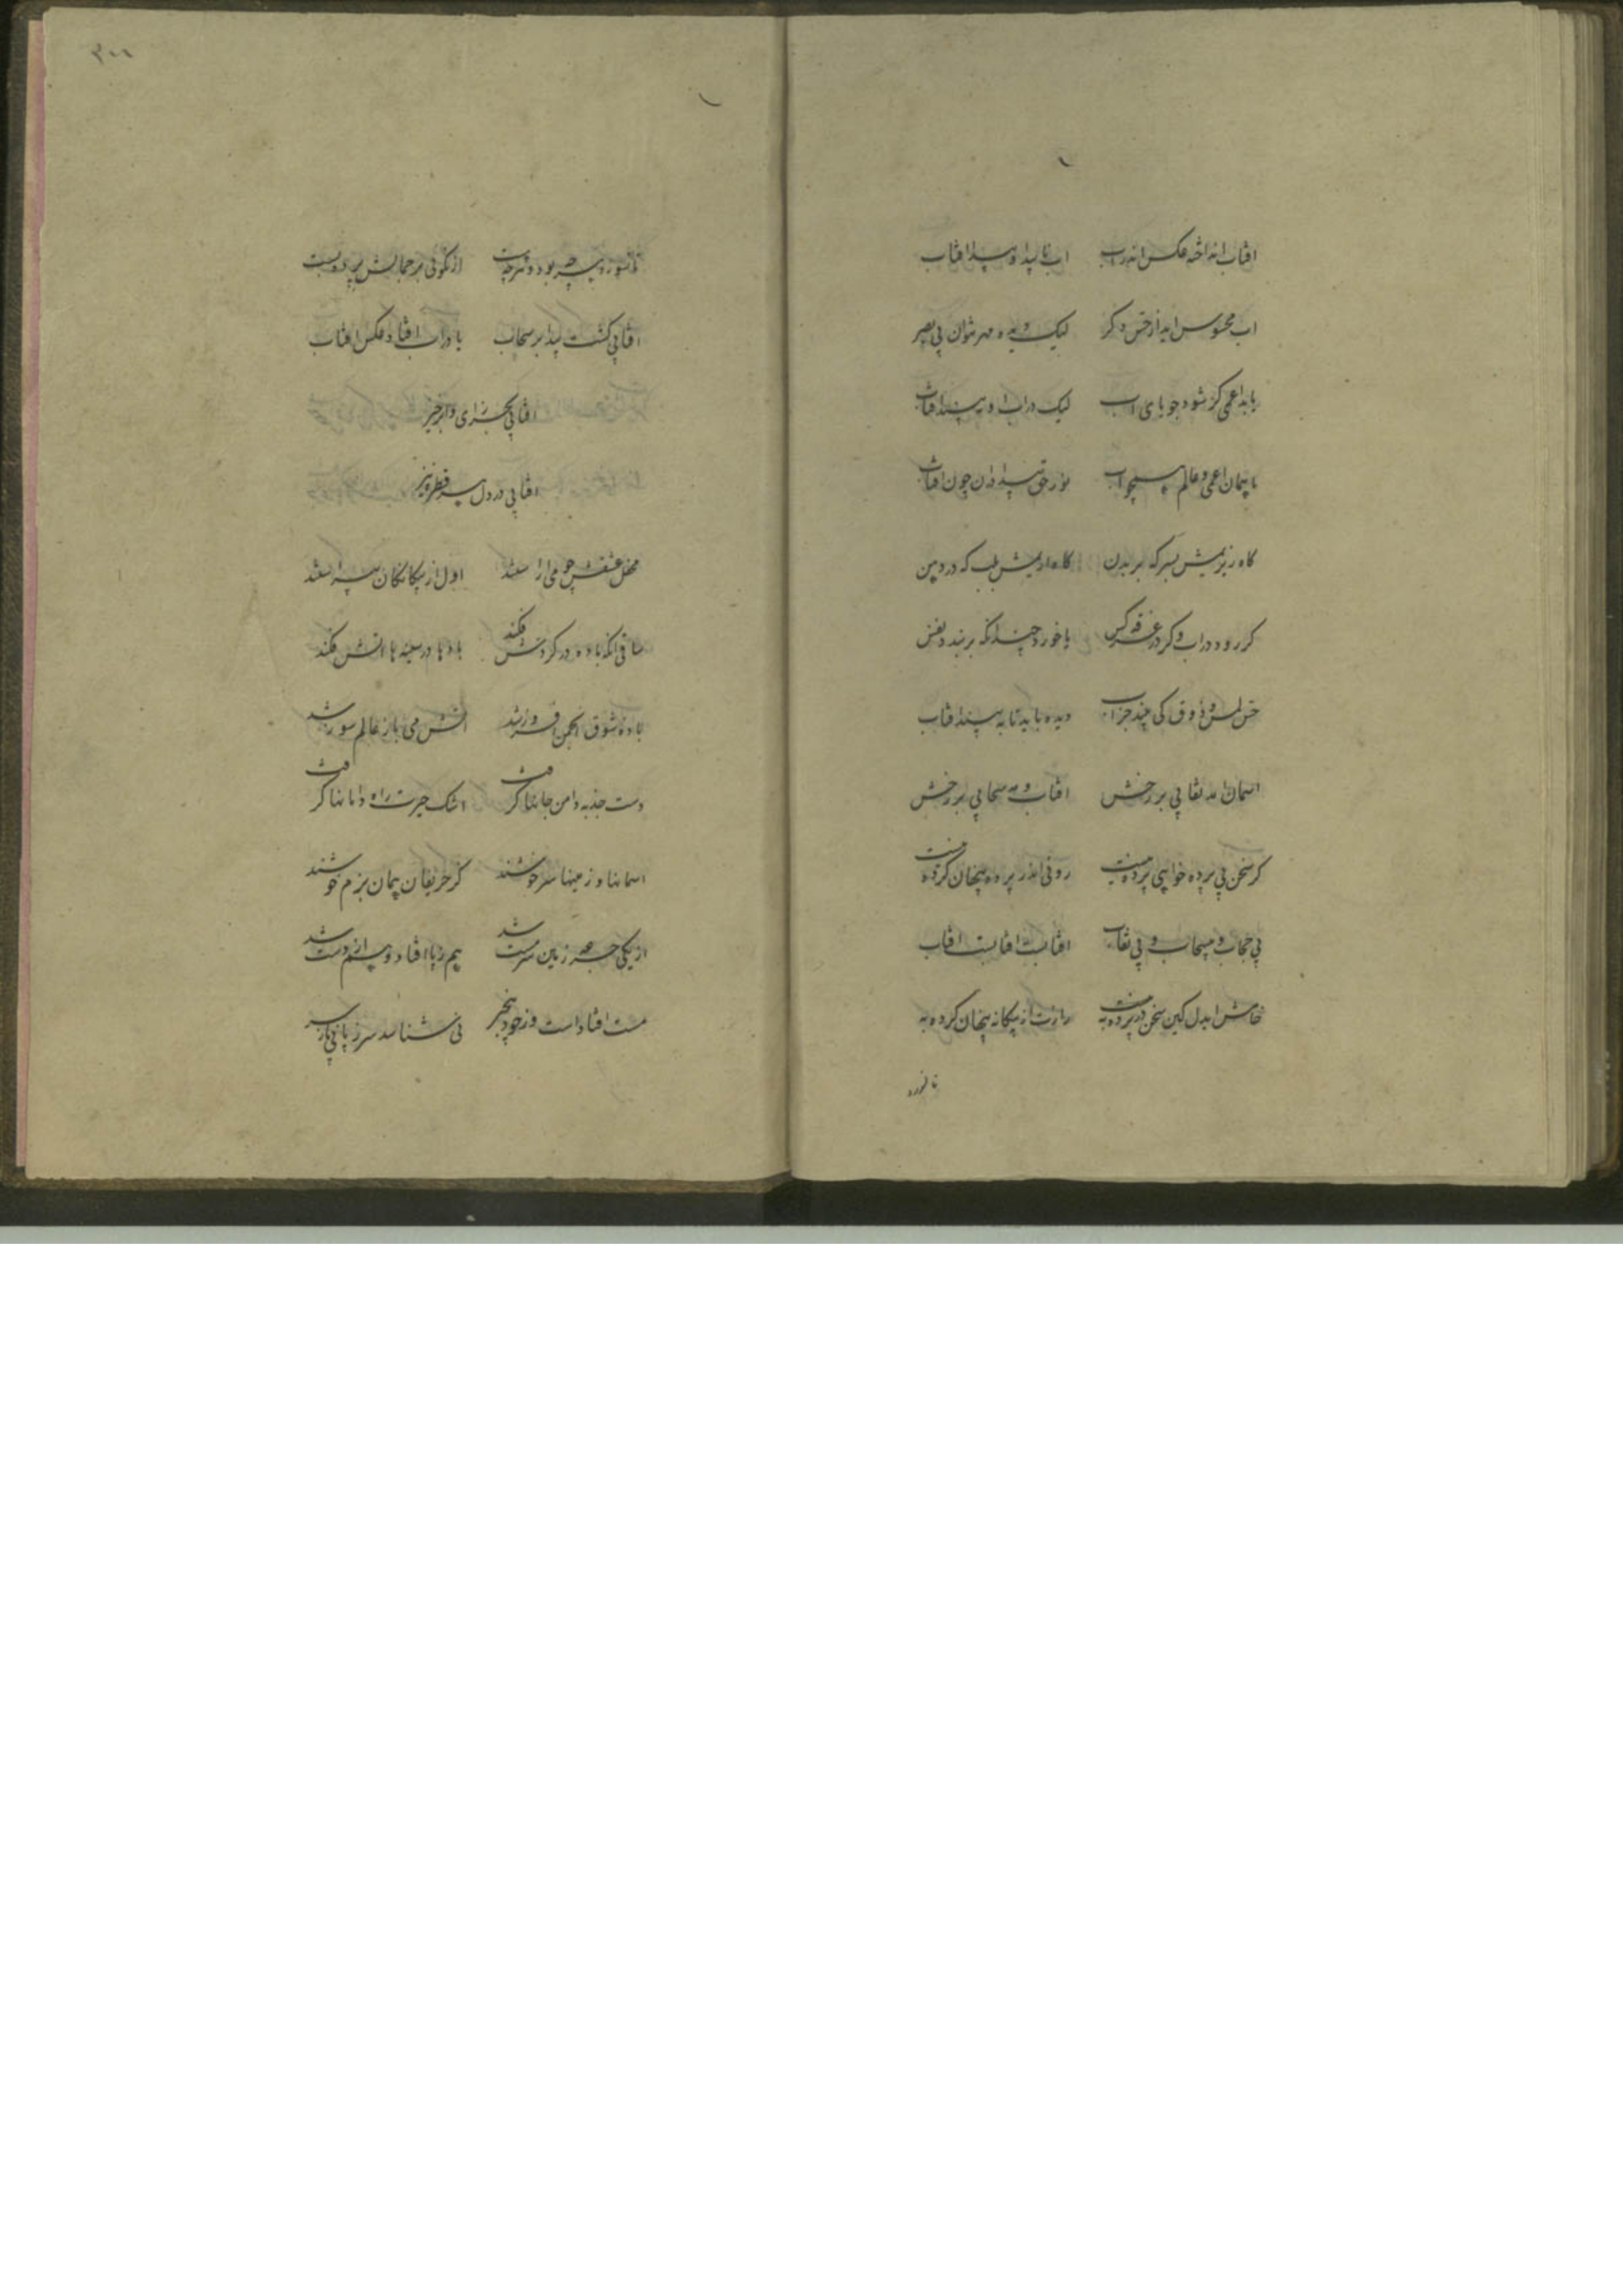 افتاب انداخته عکس اندر اب اب ناپیدا و پیدا افتاب
اب محسوس اید از حس دکر لیک دیده مهر نتوان بی بصر
یابد اعمی کر شود جویای اب لیک در اب او نه بیند افتاب
ما چمان اعمی و عالم همچو اب نور حق پیدا در ان چون افتاب
کاه زیر پیش بسر که بر بدن کاه از پیش بلب که در دهن
کر رود در اب و کردد غرقه کس یا خورد چندانکه بر بندد نفس
حس لمس و ذوق کی بیند جز اب دیده باید تا به بیند افتاب
اسمان امد نقابی بر رخش افتاب و مه سحابی بر رخش
کر سخن بی پرده خواهی پرده نیست روئی اندر پرده پنهان کرده نیست
بی حجاب و بی سحاب و بی نقاب افتابست افتابست افتاب
خامش ایدل کین سخن در پرده به رازت از بیکانه پنهان کرده به
تا نسوزد
۲۰۰
تا نسوزد هر چه بود و هر چه هست از نکوئی بر جمالش پرده بست
افتابی کشت پیدا بر سحاب یا در اب افتاد عکس افتاب
افتابی در دل هر قطره نیز
محفل عشقش چو می اراستند اول از بیکانکان پیراستند
ساقی انکه باده در کردش فکند بادها در سینه ها اتش فکند
باده شوق انجمن افروز شد اتش می باز عالم سوز شد
دست جذبه دامن جانها کرفت اشک حیرت راه دامانها کرفت
اسمانها و زمینها سرخوشند کز حریفان همان بزم خوشند
از یکی جرعه زمین سرمست شد هم ز پا افتاد و هم از دست شد
مست افتاداست و ز خود بیخبر نی شناسد سر ز پا نی پا ز سر